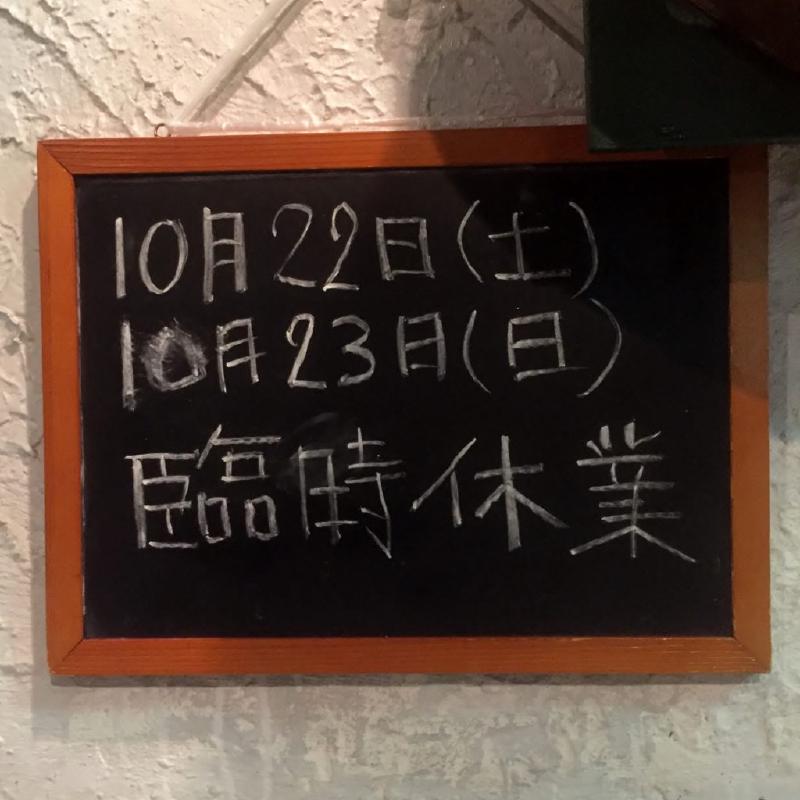 10月22日(土)
10月23日(日)
臨時休業